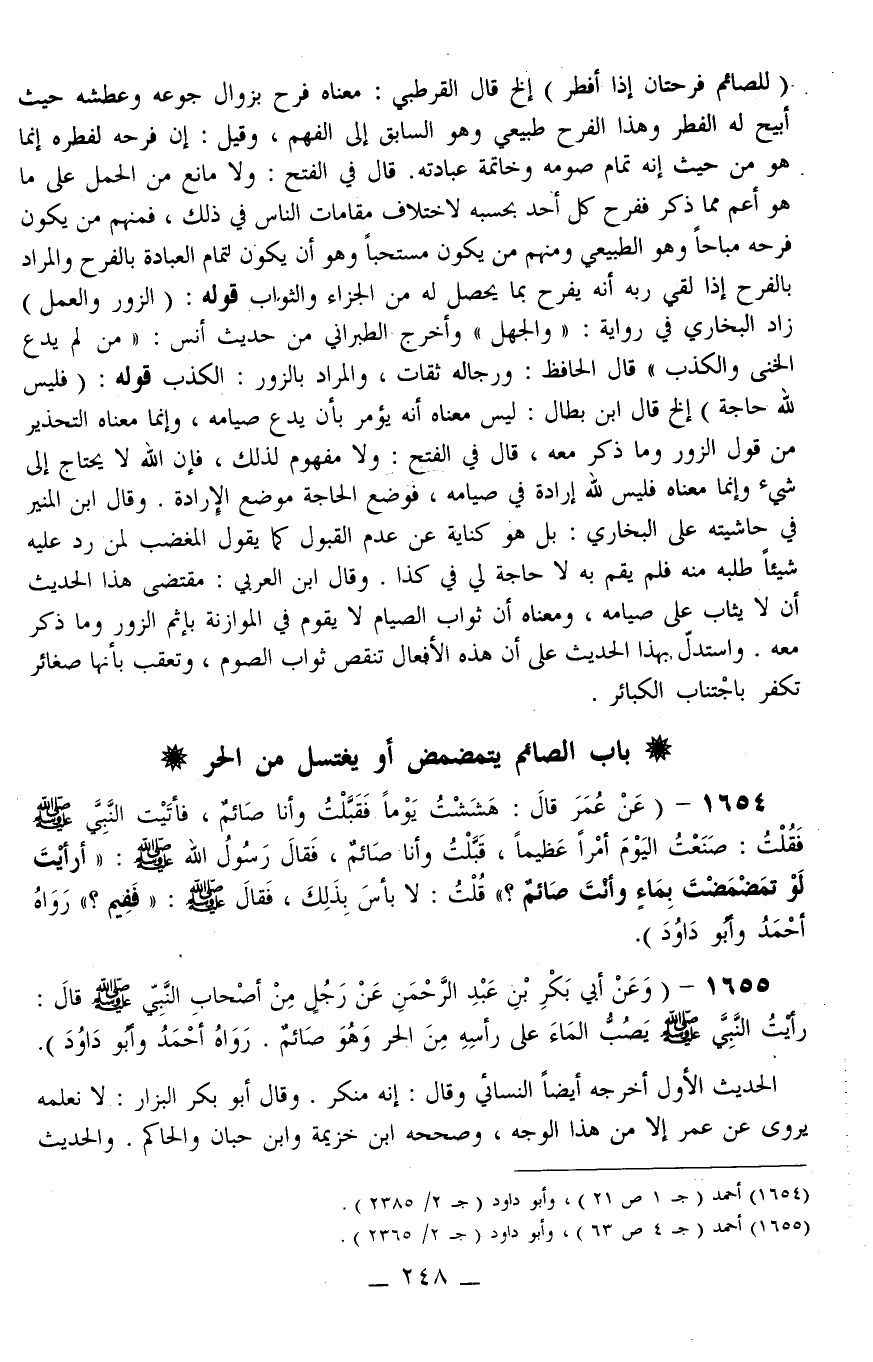 ( للصائم فرحتان إذا أفطر ) إلخ قال القرطبي : معناه فرح بزوال جوعه وعطشه حيث
أبيح له الفطر وهذا الفرح طبيعي وهو السابق إلى الفهم ، وقيل : إن فرحه لفطره إنما
هو من حيث إنه تمام صومه وخاتمة عبادته. قال في الفتح : ولا مانع من الحمل على ما
هو أعم مما ذكر ففرح كل أحد بحسبه لاختلاف مقامات الناس في ذلك ، فمنهم من يكون
فرحه مباحاً وهو الطبيعي ومنهم من يكون مستحباً وهو أن يكون لتمام العبادة بالفرح والمراد
بالفرح إذا لقي ربه أنه يفرح بما يحصل له من الجزاء والثواب قوله : ( الزور والعمل )
زاد البخاري في رواية : « والجهل » وأخرج الطبراني من حديث أنس : « من لم يدع
الخنى والكذب » قال الحافظ : ورجاله ثقات ، والمراد بالزور : الكذب قوله : ( فليس
لله حاجة ) إلخ قال ابن بطال : ليس معناه أنه يؤمر بأن يدع صيامه ، وإنما معناه التحذير
من قول الزور وما ذكر معه ، قال في الفتح : ولا مفهوم لذلك ، فإن الله لا يحتاج إلى
شيء وإنما معناه فليس لله إرادة في صيامه ، فوضع الحاجة موضع الإرادة . وقال ابن المنير
في حاشيته على البخاري : بل هو كناية عن عدم القبول كما يقول المغضب لمن رد عليه
شيئاً طلبه منه فلم يقم به لا حاجة لي في كذا . وقال ابن العربي : مقتضى هذا الحديث
أن لا يثاب على صيامه ، ومعناه أن ثواب الصيام لا يقوم في الموازنة بإثم الزور وما ذكر
معه . واستدلّ بهذا الحديث على أن هذه الأفعال تنقص ثواب الصوم ، وتعقب بأنها صغائر
تكفر باجْتناب الكبائر .
باب الصائم يتمضمض أو يغتسل من الحر
١٦٥٤ - ( عَنْ عُمَرَ قالَ : هَشَشْتُ يَوْماً فَقَبَّلْتُ وأنا صَائمٌ ، فأتَيْت النَّبِيَّ ﷺ
فَقُلْتُ : صَنَعْتُ اليَوْمَ أمْراً عَظيماً ، قَبَّلْتُ وأنا صَائمٌ ، فَقالَ رَسولُ الله ﷺ : « أرأيْتَ
لَوْ تمَضْمَضْتَ بِمَاءٍ وأنْتَ صَائمٌ ؟» قُلْتُ : لا بأسَ بِذَلِكَ ، فَقالَ ﷺ : « فَفِيم ؟» رَوَاهُ
أحْمَدُ وأبُو دَاوُدَ ).
١٦٥٥ - ( وَعَنْ أبي بَكْرِ بْنِ عَبْدِ الرَّحْمَنِ عَنْ رَجُلٍ مِنْ أصْحابِ النَّبِيّ ﷺ قالَ :
رأيْتُ النَّبِيَّ ﷺ يَصُبُّ المَاءَ على رأسِهِ مِنَ الحر وَهُوَ صَائمٌ . رَوَاهُ أحْمَدُ وأبُو دَاوُدَ ).
الحديث الأول أخرجه أيضاً النسائي وقال : إنه منكر . وقال أبو بكر البزار : لا نعلمه
يروى عن عمر إلا من هذا الوجه ، وصححه ابن خزيمة وابن حبان والحاكم . والحديث
(١٦٥٤) أحمد ( جـ ١ ص ٢١ ) ، وأبو داود ( جـ ٢/ ٢٣٨٥ ) .
(١٦٥٥) أحمد ( جـ ٤ ص ٦٣ ) ، وأبو داود ( جـ ٢/ ٢٣٦٥ ) .
ـ ٢٤٨ ـ